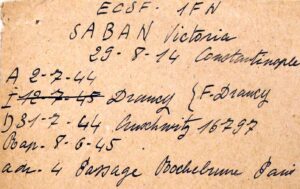 ECSF. 1FN
SABAN Victoria
29-8-14 Constantinople
A 2-7-44
I 12-7-45 Drancy { F. Drancy
D 31-7-44 Auschwitz 16797
Rap. 8-6-45
adr. 4 Passage Rochebrune Paris